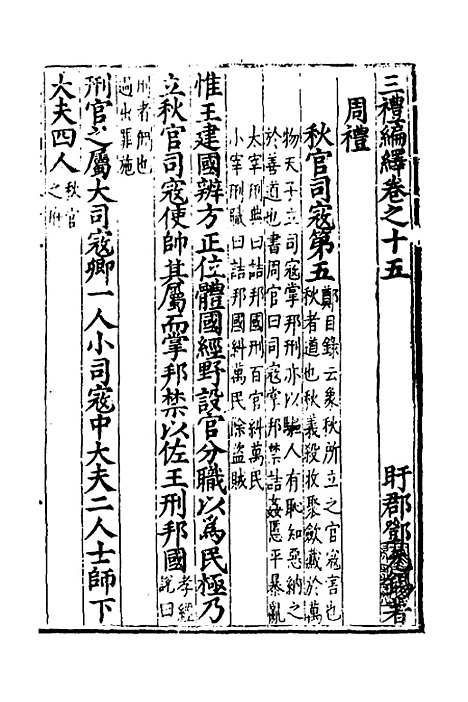 三禮編繹卷之十五
盱郡鄧元錫著
周禮
秋官司寇第五
鄭目錄云象秋所立之官寇害也
秋者遒也秋義殺收聚斂藏於萬
物天子立司寇掌邦刑亦以驅人有恥知惡納之
於善道也書周官曰司寇掌邦禁詰姦慝平暴亂
太宰刑典曰詰邦國刑百官糾萬民
小宰刑職曰詰邦國糾萬民除盜賊
惟王建國辨方正位體國經野設官分職以為民極乃
立秋官司寇使帥其屬而掌邦禁以佐王刑邦國
孝經
說曰
刑者侀也
過出罪施
刑官之屬大司寇卿一人小司寇中大夫二人士師下
大夫四人
秋官
之